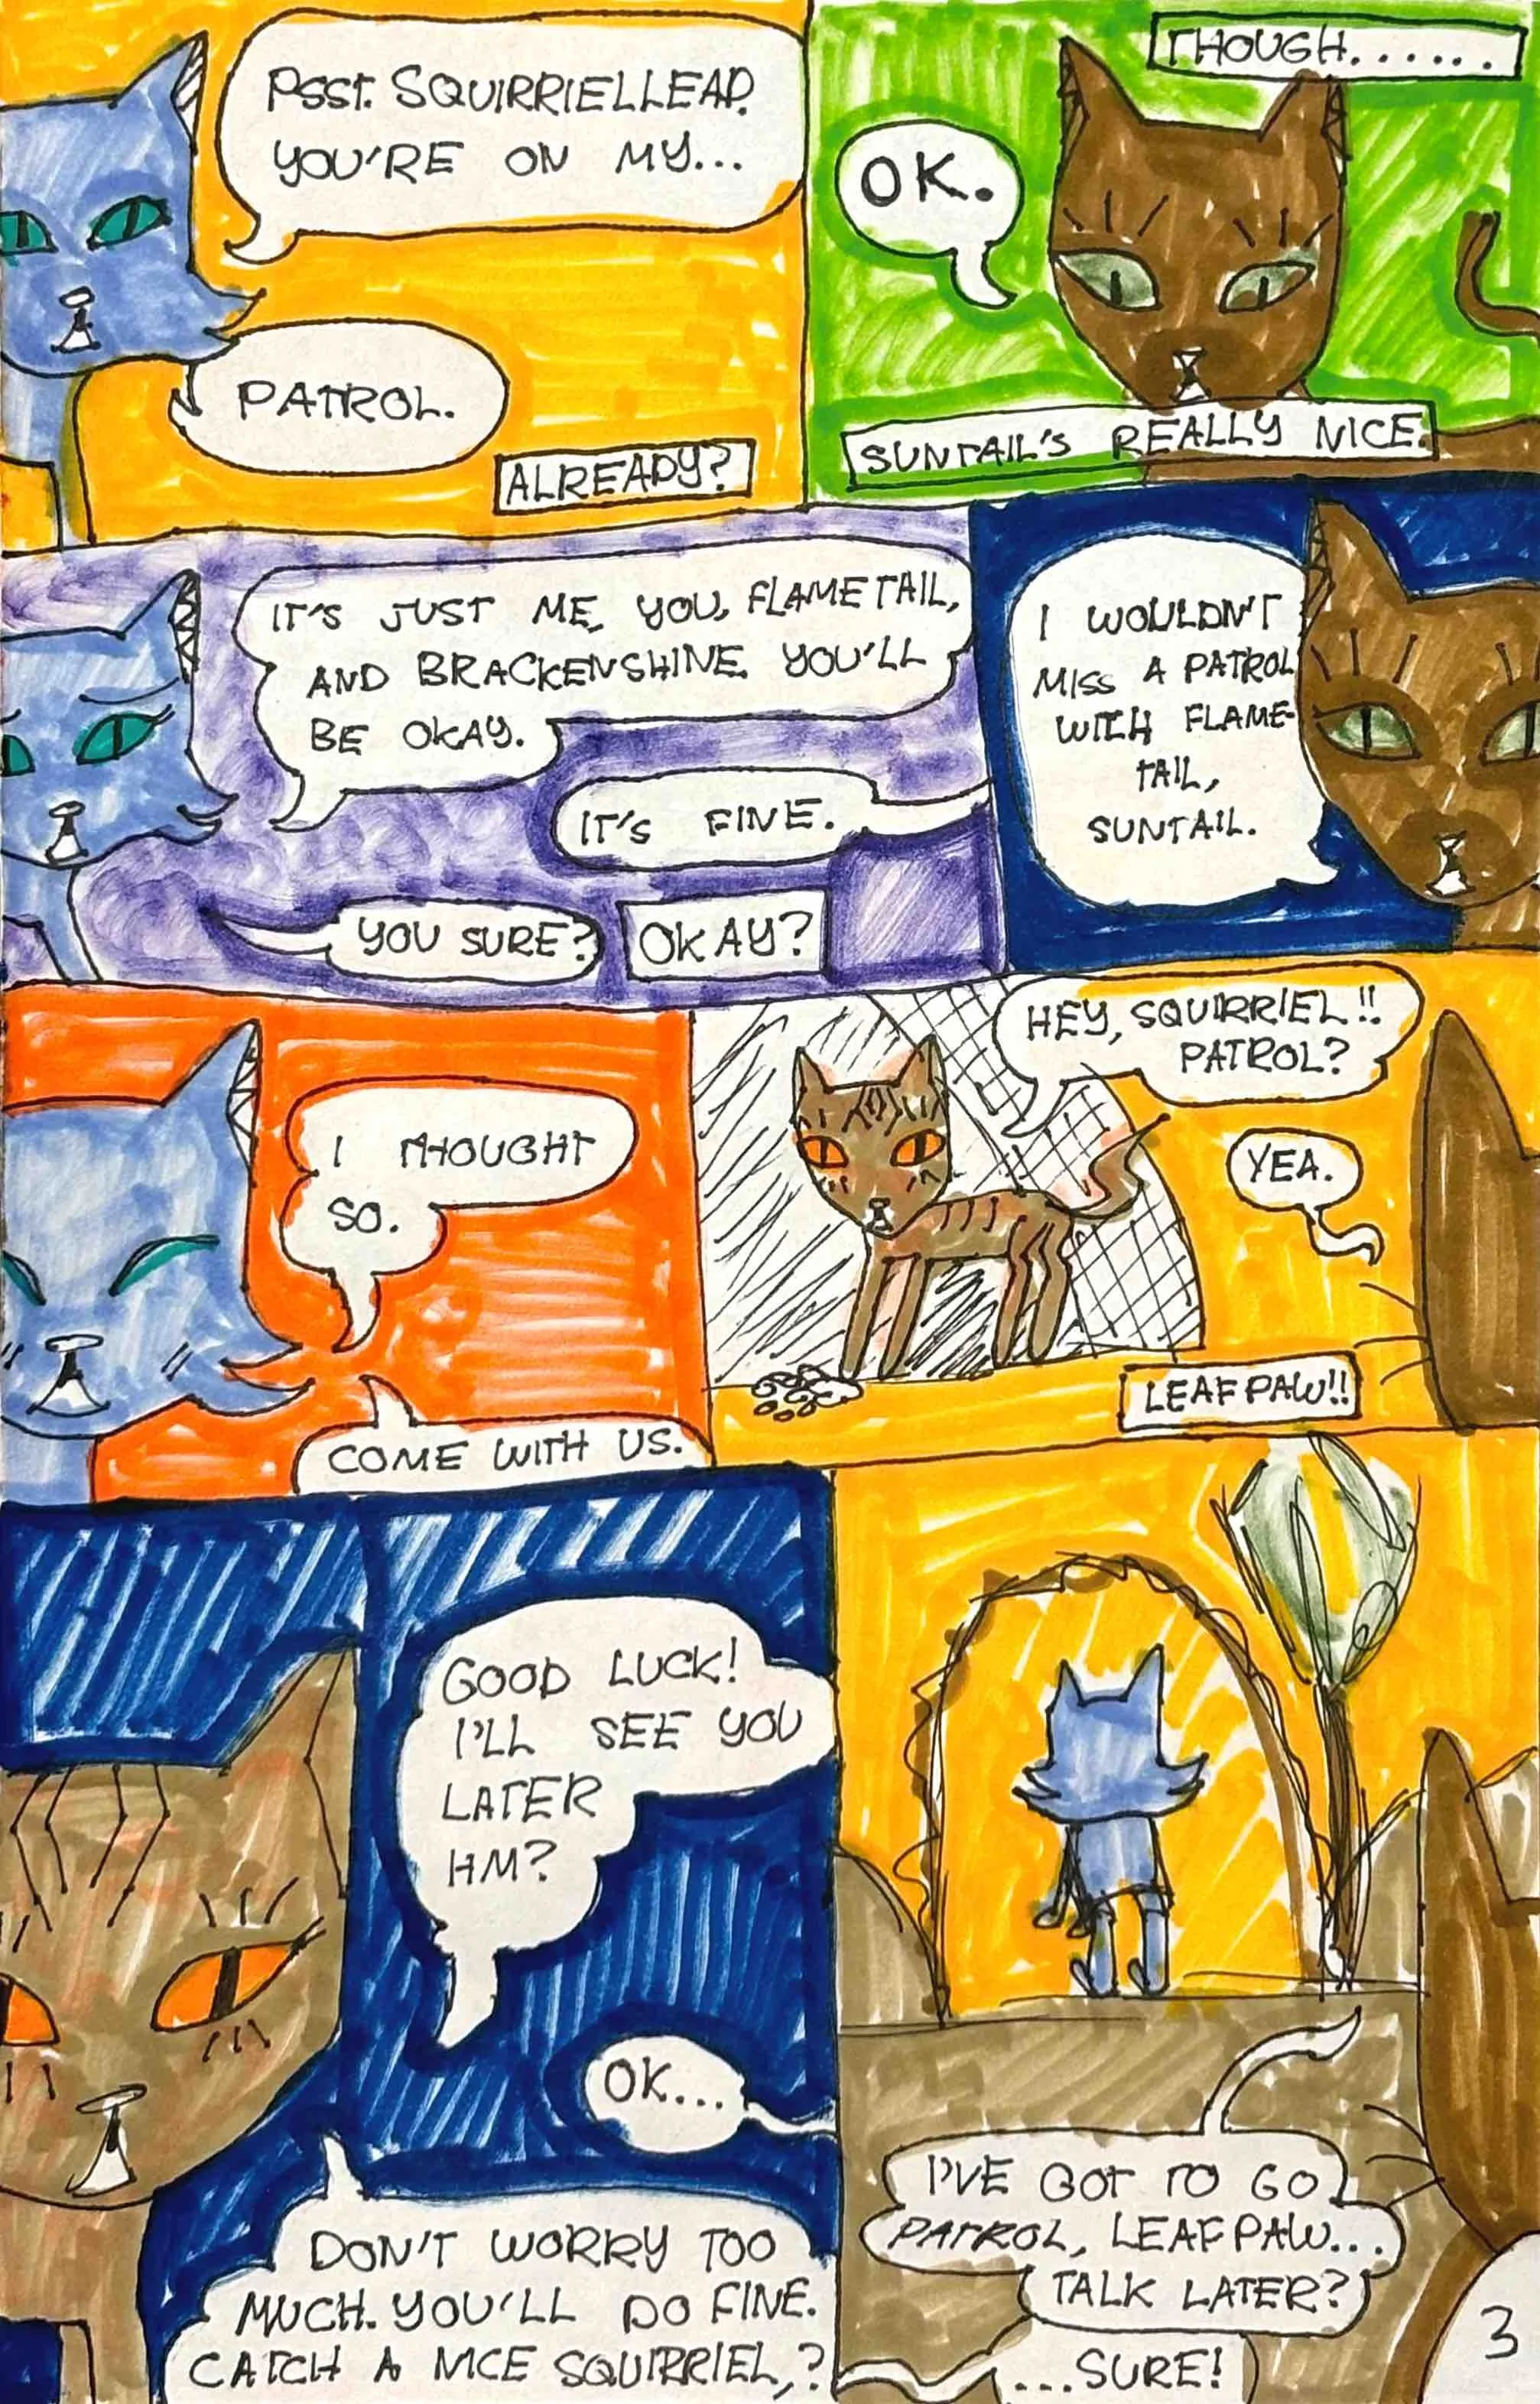 PSST. SQUIRRIELLEAP.
YOU'RE ON MY...
PATROL.
ALREADY?
THOUGH......
OK.
SUNTAIL'S REALLY NICE.
IT'S JUST ME, YOU, FLAMETAIL,
AND BRACKENSHINE. YOU'LL
BE OKAY.
IT'S FINE.
YOU SURE?
OKAY?
I WOULDN'T
MISS A PATROL
WITH FLAME-
TAIL,
SUNTAIL.
I THOUGHT
SO.
COME WITH US.
HEY, SQUIRRIEL!!
PATROL?
YEA.
LEAFPAW!!
GOOD LUCK!
I'LL SEE YOU
LATER
HM?
OK...
DON'T WORRY TOO
MUCH. YOU'LL DO FINE.
CATCH A NICE SQUIRRIEL,?
I'VE GOT TO GO
PATROL, LEAFPAW...
TALK LATER?
...SURE!
3